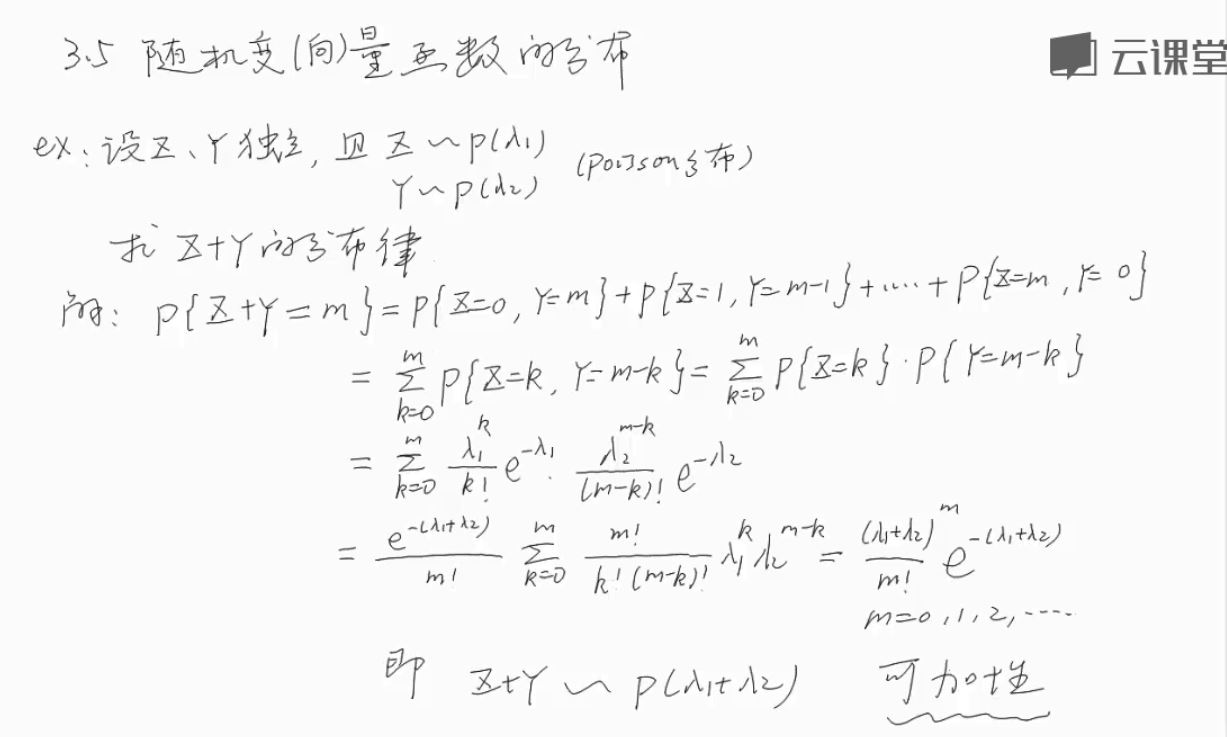 3.5 随机变(向)量函数的分布
云课堂
ex: 设X、Y独立, 且 X~P(λ₁) (Poisson分布)
Y~P(λ₂)
求 X+Y的分布律
解: P{X+Y=m}=P{X=0, Y=m}+P{X=1, Y=m-1}+……+P{X=m, Y=0}
= \sum_{k=0}^{m} P{X=k, Y=m-k} = \sum_{k=0}^{m} P{X=k}·P{Y=m-k}
= \sum_{k=0}^{m} \frac{λ₁^k}{k!} e^{-λ₁}·\frac{λ₂^{m-k}}{(m-k)!} e^{-λ₂}
= \frac{e^{-(λ₁+λ₂)}}{m!} \sum_{k=0}^{m} \frac{m!}{k!(m-k)!} λ₁^k λ₂^{m-k} = \frac{(λ₁+λ₂)^m}{m!} e^{-(λ₁+λ₂)}
m=0,1,2,……
即 X+Y~P(λ₁+λ₂) 可加性